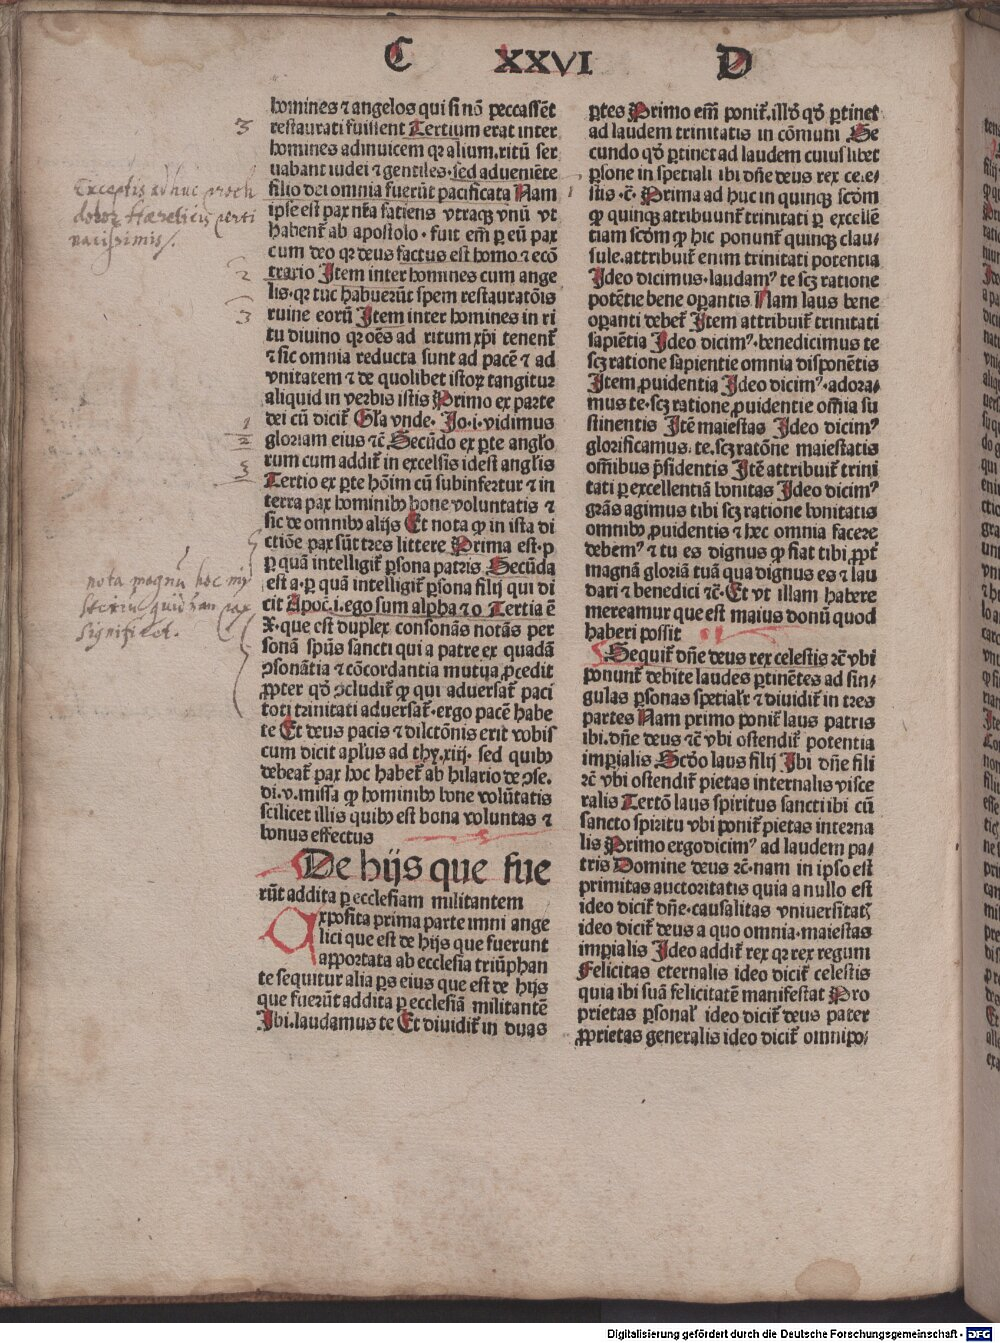 C XXVI D
homines ⁊ angelos qui si nō peccassēt
restaurati fuissent Tertium erat inter
homines adinuicem qꝛ alium.ritū ser
uabant iudei ⁊ gentiles·sed adueniēte
filio dei omnia fuerūt pacificata Nam
ipse est pax nr̄a fatiens vtraqꝫ vnū vt
habent᷑ ab apostolo·fuit em̄ ꝑ eū pax
cum deo qꝛ deus factus est homo ⁊ ecō
trario Item inter homines cum ange
lis·qꝛ tūc habuerūt spem restauratōis
ruine eorū Item inter homines in ri
tu diuino qꝛ oēs ad ritum xp̄i tenent᷑
⁊ sic omnia reducta sunt ad pacē ⁊ ad
vnitatem ⁊ de quolibet istoꝝ tangitur
aliquid in verbis istis Primo ex parte
dei cū dicit᷑ Gl̄a vnde·Jo·i·vidimus
gloriam eius ⁊c̄ Secūdo ex ꝑte anglo
rum cum addit᷑ in excelsis idest anglis
Tertio ex ꝑte hōim cū subinfertur ⁊ in
terra pax hominibꝰ bone voluntatis ⁊
sic de omnibꝰ alijs Et nota ꝙ in ista di
ctiōe pax sūt tres littere Prima est·p
ꝑ quā intelligit᷑ ꝑsona patris Secūda
est a·ꝑ quā intelligit᷑ ꝑsona filij qui di
cit Apoc·i·ego sum alpha ⁊ o Tertia ē
X·que est duplex consonās notās per
sonā spūs sancti qui a patre ex quadā
ↄsonātia ⁊ cōcordantia mutua ꝓcedit
ꝓpter qd̓ ↄcludit᷑ ꝙ qui aduersat᷑ paci
toti trinitati aduersat᷑·ergo pacē habe
te Et deus pacis ⁊ dilctōnis erit vobis
cum dicit apl̄us ad thy·xiij· sed quibꝰ
debeat᷑ pax hoc habet᷑ ab hilario de ↄse.
di·v·missa ꝙ hominibꝰ bone volūtatis
scilicet illis quibꝰ est bona voluntas ⁊
bonus effectus
De hijs que fue
rūt addita ꝑ ecclesiam militantem
Exposita prima parte imni ange
lici que est de hijs que fuerunt
apportata ab ecclesia triūphan
te sequitur alia pars eius que est de hijs
que fuerūt addita ꝑ ecclesiā militantē
Ibi.laudamus te Et diuidit᷑ in duas
ꝑtes Primo em̄ ponit᷑.illd̓ qd̓ ꝑtinet
ad laudem trinitatis in cōmuni Se
cundo qd̓ ꝑtinet ad laudem cuiuslibet
ꝑsone in spetiali ibi dn̄e deus rex ce.e
stis·⁊c̄· Prima ad huc in quinqꝫ scd̄m
ꝙ quinqꝫ atribuunt᷑ trinitati ꝑ excellē
tiam scd̄m ꝙ hic ponunt᷑ quinqꝫ clau
sule.attribuit᷑ enim trinitati potentia
Ideo dicimus·laudamꝰ te scꝫ ratione
potētie bene oꝑantis Nam laus bene
oꝑanti debet᷑ Item attribuit᷑ trinitati
sapiētia Ideo dicimꝰ·benedicimus te
scꝫ ratione sapientie omnia disponētis
Item ꝓuidentia Ideo dicimꝰ·adora
mus te·scꝫ ratione ꝓuidentie om̄ia su
stinentis Itē maiestas Ideo dicimꝰ
glorificamus·te.scꝫ ratōne maiestatis
om̄ibus p̄sidentis Itē attribuit᷑ trini
tati ꝑ excellentiā bonitas Ideo dicimꝰ
gr̄as agimus tibi scꝫ ratione bonitatis
omnibꝰ ꝓuidentis ⁊ hec omnia facere
debemꝰ ⁊ tu es dignus ꝙ fiat tibi ꝓpt᷑
magnā gloriā tuā qua dignus es ⁊ lau
dari ⁊ benedici ⁊c̄·Et vt illam habere
mereamur que est maius donū quod
haberi possit
Sequit᷑ dn̄e deus rex celestis ⁊c̄ vbi
ponunt᷑ debite laudes ꝑtinētes ad sin
gulas ꝑsonas spetialr̄ ⁊ diuidit᷑ in tres
partes Nam primo ponit᷑ laus patris
ibi.dn̄e deus ⁊c̄ vbi ostendit᷑ potentia
imꝑialis Scd̓o laus filij Ibi dn̄e fili
⁊c̄ vbi ostendit᷑ pietas internalis visce
ralis Tertō laus spiritus sancti ibi cū
sancto spiritu vbi ponit᷑ pietas interna
lis Primo ergo dicimꝰ ad laudem pa
tris Domine deus ⁊c̄·nam in ipso est
primitas auctoritatis quia a nullo est
ideo dicit᷑ dn̄e·causalitas vniuersitatꝭ
ideo dicit᷑ deus a quo omnia·maiestas
imꝑialis Ideo addit᷑ rex qꝛ rex regum
Felicitas eternalis ideo dicit᷑ celestis
quia ibi suā felicitatē manifestat Pro
prietas ꝑsonal᷑ ideo dicit᷑ deus pater
ꝓprietas generalis ideo dicit᷑ omnipo
3
Exceptis adhuc proch
dolor Hæreticis perti
nacissimis
2
3
1
2
3
nota magnū hoc my
sterium quid nam pax
significet.
Digitalisierung gefördert durch die Deutsche Forschungsgemeinschaft - DFG